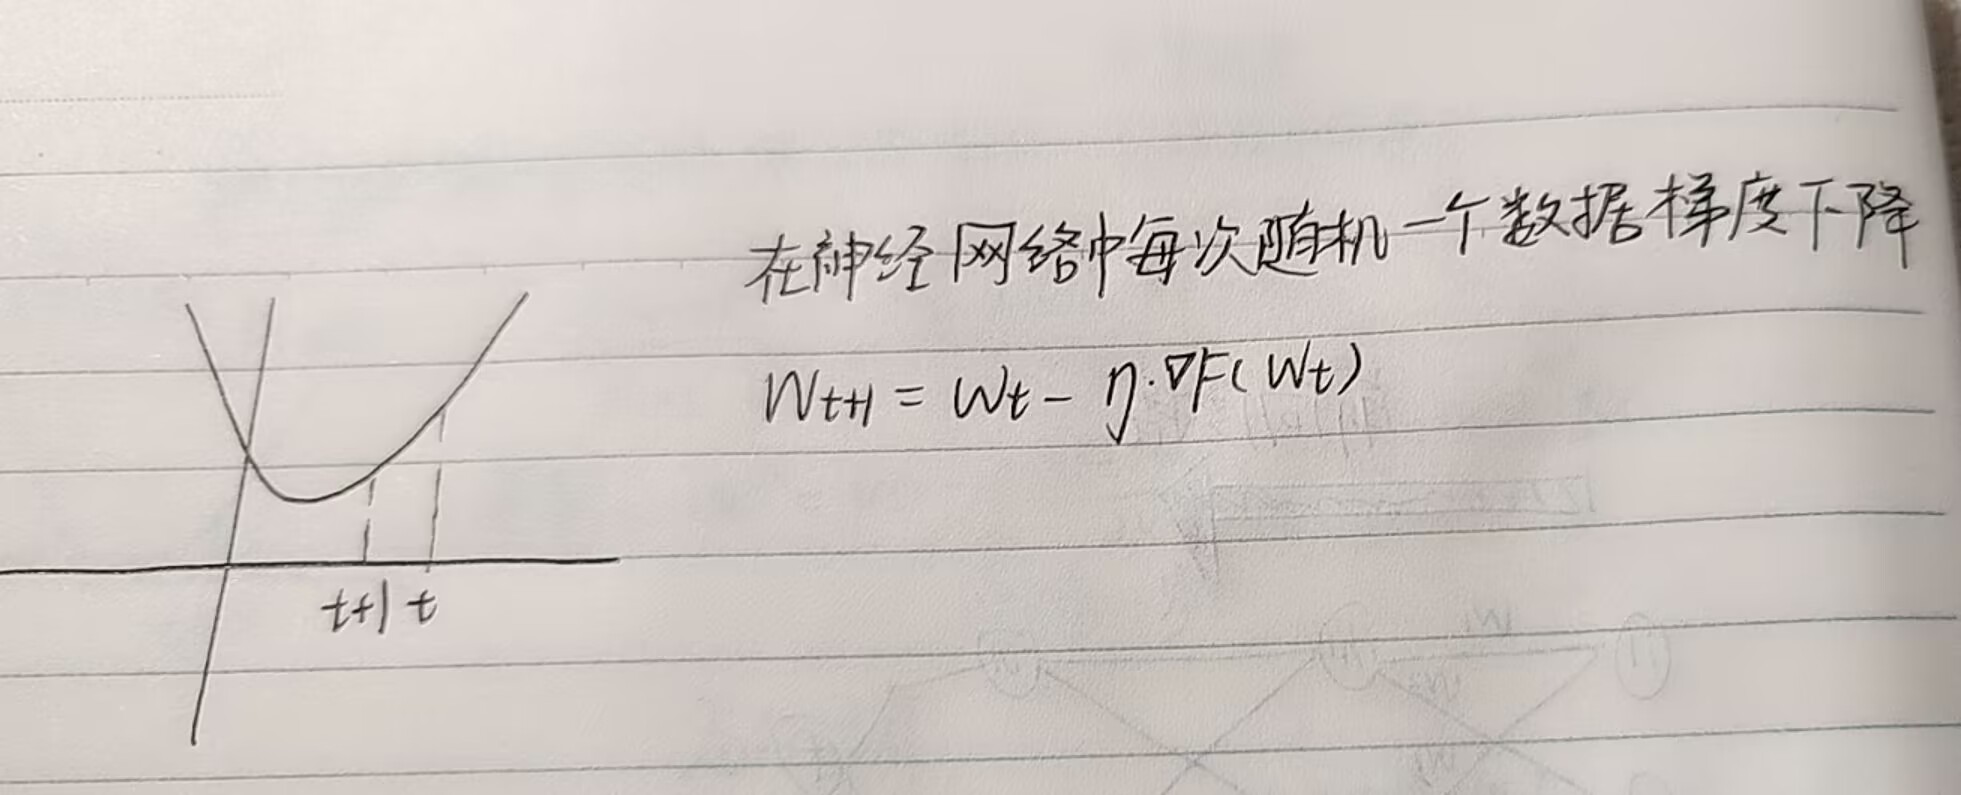 在神经网络中每次随机一个数据梯度下降
Wt+1 = Wt - η·∇F(Wt)
t+1 t